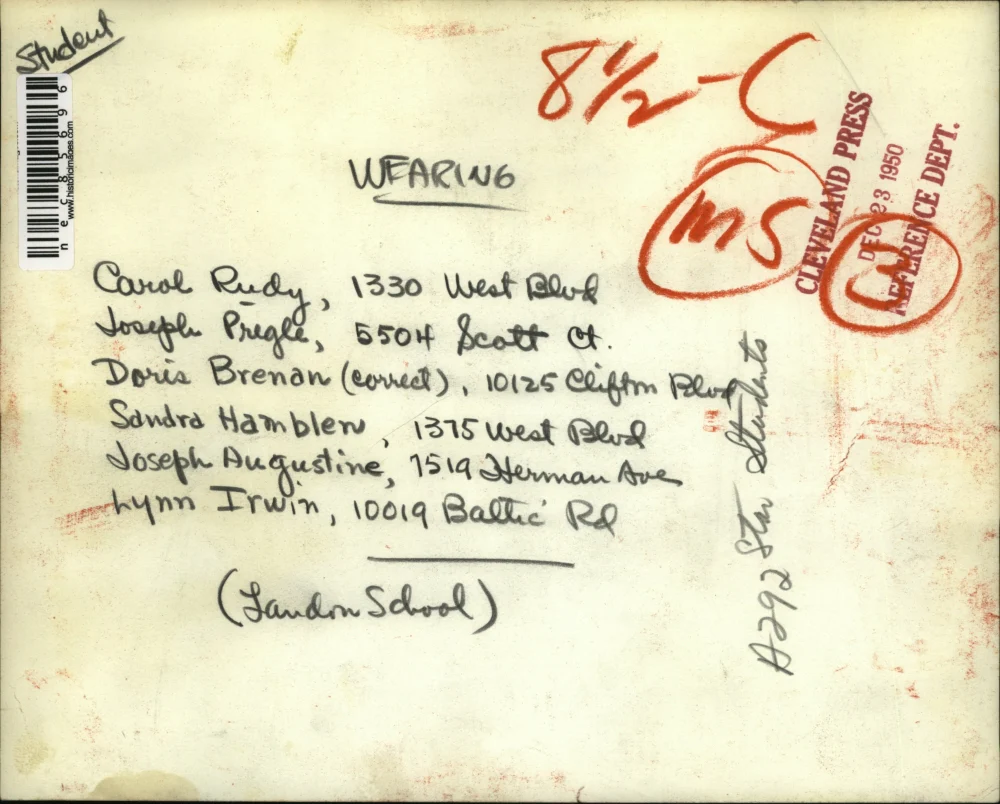 Student
8 1/2 - C
WEARING
MS
CLEVELAND PRESS
DEC 23 1950
REFERENCE DEPT.
Carol Rudy, 1330 West Blvd
Joseph Pregle, 5504 Scott Ct.
Doris Brenan (correct), 10125 Clifton Blvd
Sandra Hamblen, 1375 West Blvd
Joseph Augustine, 7519 Herman Ave
Lynn Irwin, 10019 Baltic Rd
(Landon School)
A292 Star Students
nec85696
www.historicimages.com